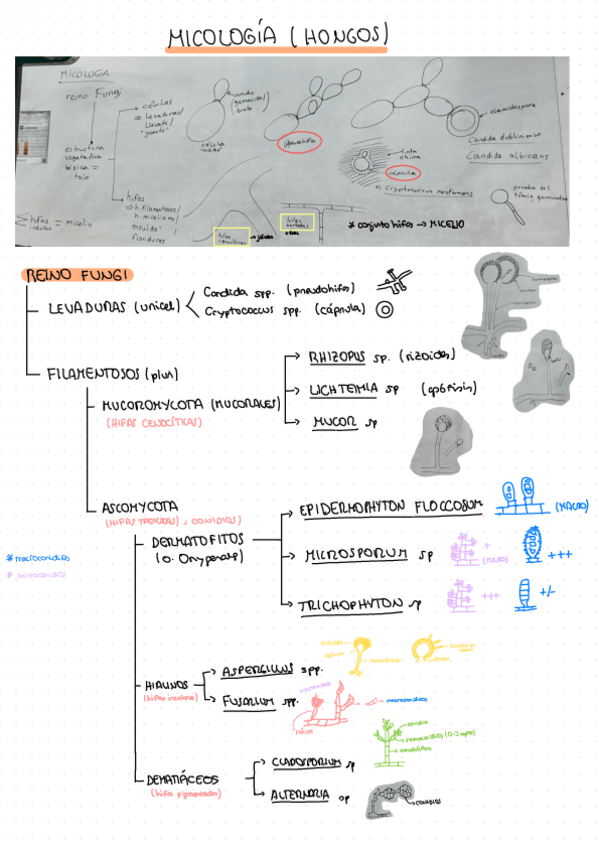 MICOLOGÍA (HONGOS)
MICOLOGIA
reino Fungi
células
levaduras/
estructura
vegetativa
básica =
talo
hifas
h. filamentosos/
hifas = micelio
célula
pseudohifa
clamidospora
Candida dubliniensis
Candida albicans
tinta
china
cápsula
Cryptococcus neoformans
prueba del
tubo germinativo
hifas
hifas
* conjunto hifas → MICELIO
REINO FUNGI
LEVADURAS (unicel)
Candida spp. (pseudohifas)
Cryptococcus spp. (cápsula)
FILAMENTOSOS (pluri)
MUCOROMYCOTA (MUCORALES)
(HIFAS CENOCÍTICAS)
RHIZOPUS sp. (rizoides)
LICHTEIMIA sp (apófisis)
MUCOR sp
ASCOMYCOTA
(HIFAS TABICADAS, CONIDIOS)
DERMATOFITOS
(o. Onygenales)
EPIDERMOPHYTON FLOCCOSUM (MACRO)
MICROSPORUM sp + (MICRO) +++
TRICHOPHYTON sp +++ +/-
* macroconidios
* microconidios
HIALINOS
(hifas incoloras)
ASPERGILLUS spp.
FUSARIUM spp.
microconidios
macroconidios
DEMATIÁCEOS
(hifas pigmentadas)
CLADOSPORIUM sp
conidio
ramoconidios (0-3 septos)
conidióforo
ALTERNARIA sp
CONIDIOS